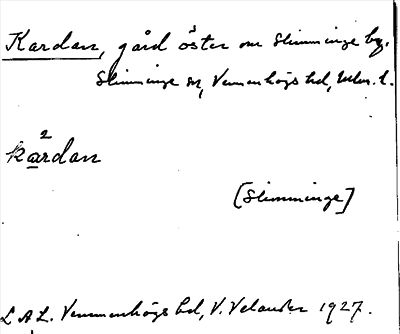 Kardan, gård öster om Slimminge by.
Slimminge sn, Vemmenhögs hd, Mlm. l.
2
kardan
[Slimminge]
L A L. Vemmenhögs hd, V. Velander 1927.